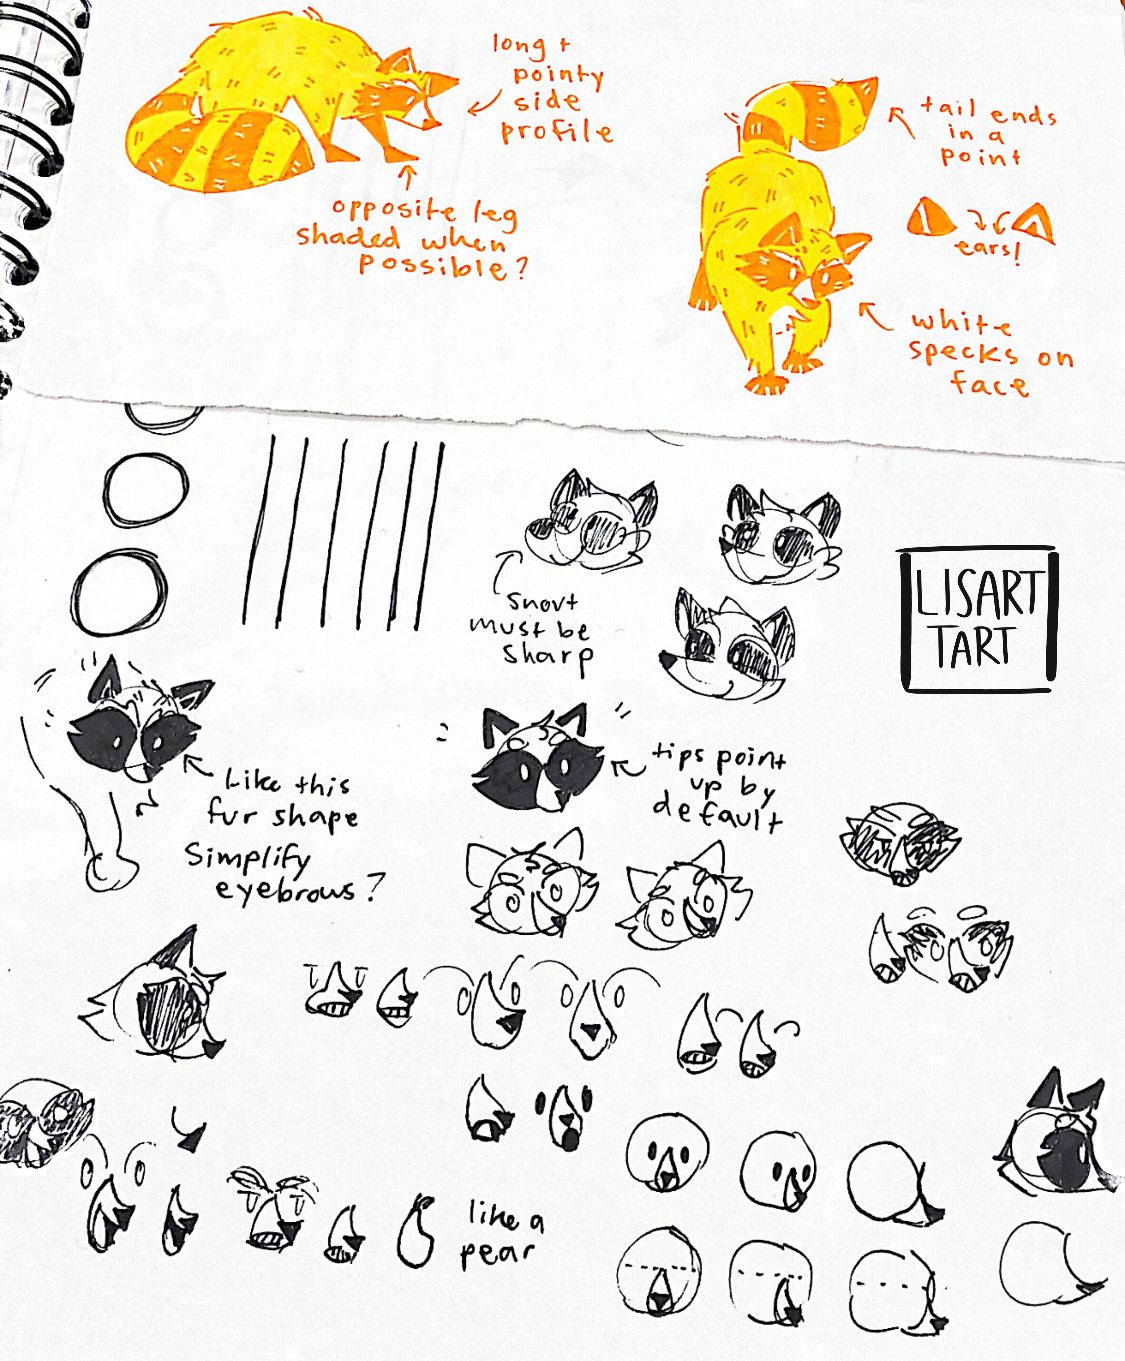 long +
pointy
side
profile
opposite leg
shaded when
possible?
tail ends
in a
point
ears!
white
specks on
face
snout
must be
sharp
LISART
TART
Like this
fur shape
Simplify
eyebrows?
tips point
up by
default
like a
pear